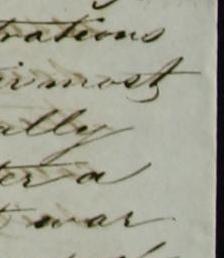 trations
ir most
ally
ter a
t war